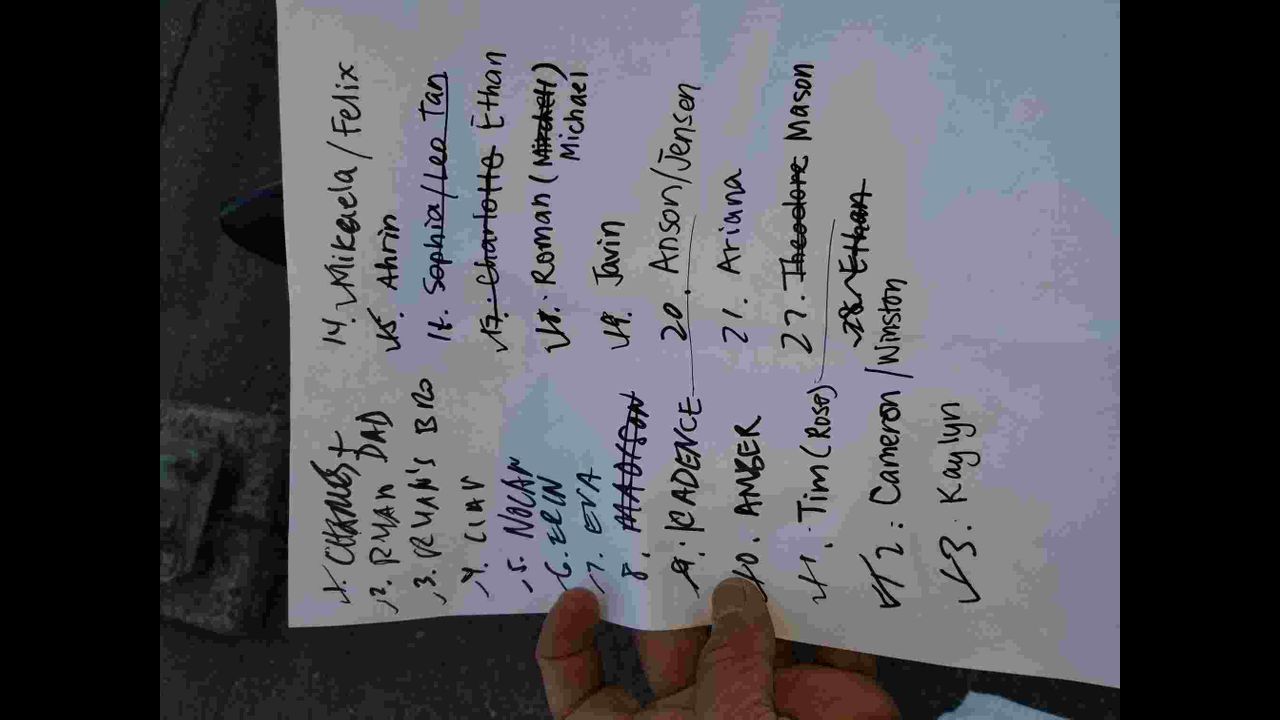 1. CHARLES +
2. RYAN DAD
3. RYAN'S BRO
4. LIAV
5. NOLAN
6. ERIN
7. EVA
8. MADISON
9. KADENCE
10. AMBER
11. Tim (Rose)
12. Cameron / Winston
13. Kaylyn
14. Mikaela / Felix
15. Ahrin
16. Sophia / Leo Tan
17. Charlotte Ethan
18. Roman (Mitchell)
Michael
19. Javin
20. Anson/Jensen
21. Ariana
27. Theodore Mason
28. Ethan